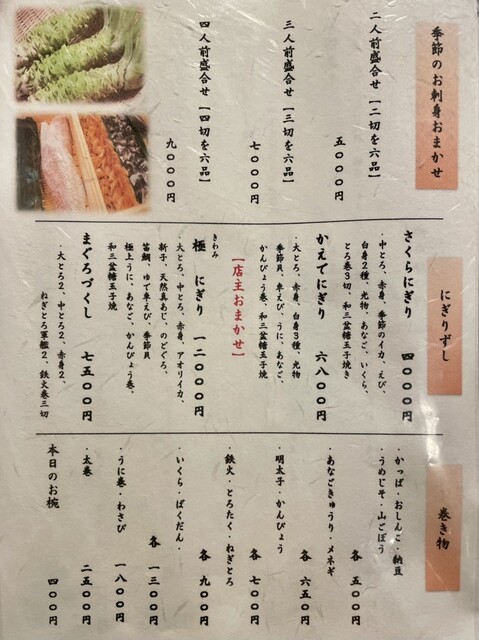 季節のお刺身おまかせ
二人前盛合せ【二切を六品】
五〇〇〇円
三人前盛合せ【三切を六品】
七〇〇〇円
四人前盛合せ【四切を六品】
九〇〇〇円
にぎりずし
さくらにぎり 四〇〇〇円
・中とろ、赤身、季節のイカ、えび、
白身2種、光物、あなご、いくら、
とろ巻3切、和三盆糖玉子焼き
かえでにぎり 六八〇〇円
・大とろ、赤身、白身3種、光物
季節貝、車えび、うに、あなご、
かんぴょう巻、和三盆糖玉子焼
【店主おまかせ】
きわみ
極 にぎり 一二〇〇〇円
・大とろ、中とろ、赤身、アオリイカ、
新子、天然真あじ、のどぐろ、
笛鯛、ゆで車えび、季節貝
極上うに、あなご、かんぴょう巻、
和三盆糖玉子焼
まぐろづくし 七五〇〇円
・大とろ2、中とろ2、赤身2、
ねぎとろ軍艦2、鉄火巻三切
巻き物
・かっぱ・おしんこ・納豆
・うめじそ・山ごぼう
各 五〇〇円
・あなごきゅうり・メネギ
各 六五〇円
・明太子・かんぴょう
各 七〇〇円
・鉄火・とろたく・ねぎとろ
各 九〇〇円
・いくら・ばくだん・
各 一三〇〇円
・うに巻・わさび
一八〇〇円
・太巻 二五〇〇円
本日のお椀 四〇〇円